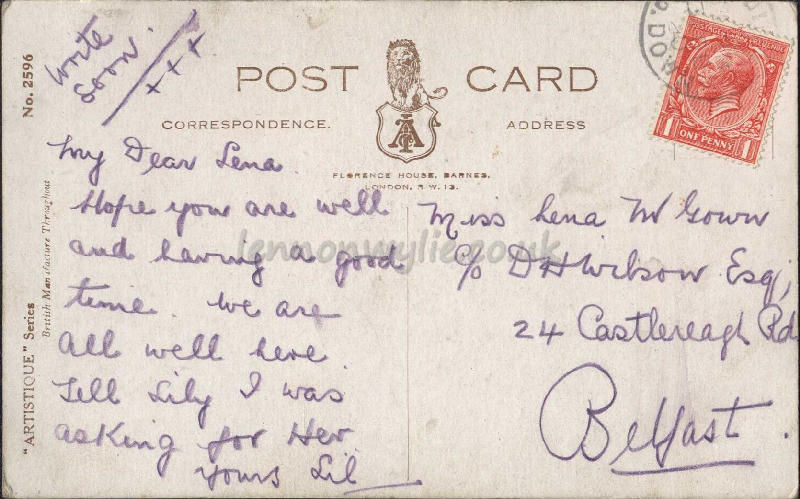 Write
Soon.
+++
No. 2596
"ARTISTIQUE" Series
British Manufacture Throughout
POST CARD
CORRESPONDENCE.
ADDRESS
FLORENCE HOUSE, BARNES,
LONDON, S.W.13.
POSTAGE REVENUE
1 ONE PENNY 1
My Dear Lena
Hope you are well
and having a good
time. We are
all well here.
Tell Lily I was
asking for Her
Yours Lil
Miss Lena McGown
c/o D H Wilson Esq,
24 Castlereagh Rd
Belfast.
lennonwylie.co.uk